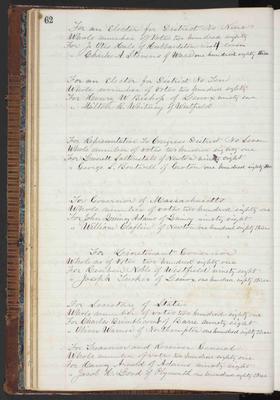 62
For an Elector for District No Nine
Whole number of Votes two hundred eighty
For J. Otis Hale of Hubbardston ninety seven
" Charles A. Stevens of Ware one hundred eighty three
For an Elector for District No Ten
Whole number of votes two hundred eighty
For Henry W Bishop of Lenox ninety one
" Milton B. Whitney of Westfield
For Representative To Congress District No Seven
Whole number of votes two hundred eighty one
For Leverett Saltonstall of Newton ninety eight
" George S. Boutwell of Groton one hundred eighty three
For Governor of Massachusetts
Whole number of votes two hundred eighty one
For John Quincy Adams of Quincy ninety eight
" William Claflin of Newton one hundred eighty three
For Lieutenant Governor
Whole no of Votes two hundred eighty one
For Reuben Noble of Westfield ninety eight
" Joseph Tucker of Lenox one hundred eighty three
For Secretary of State
Whole number of votes two hundred eighty one
For Charles of Barre ninety eight
" Oliver Warner of Northampton one hundred eighty three
For Treasurer and Receiver General
Whole number of votes two hundred eighty one
For Harvey Arnold of Adams ninety eight
" Jacob H. Loud of Plymouth one hundred eighty three